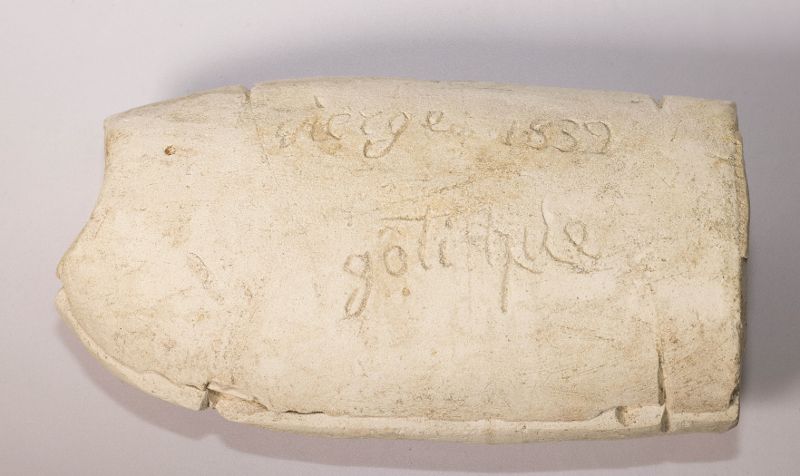 vierge 1839
gôtique